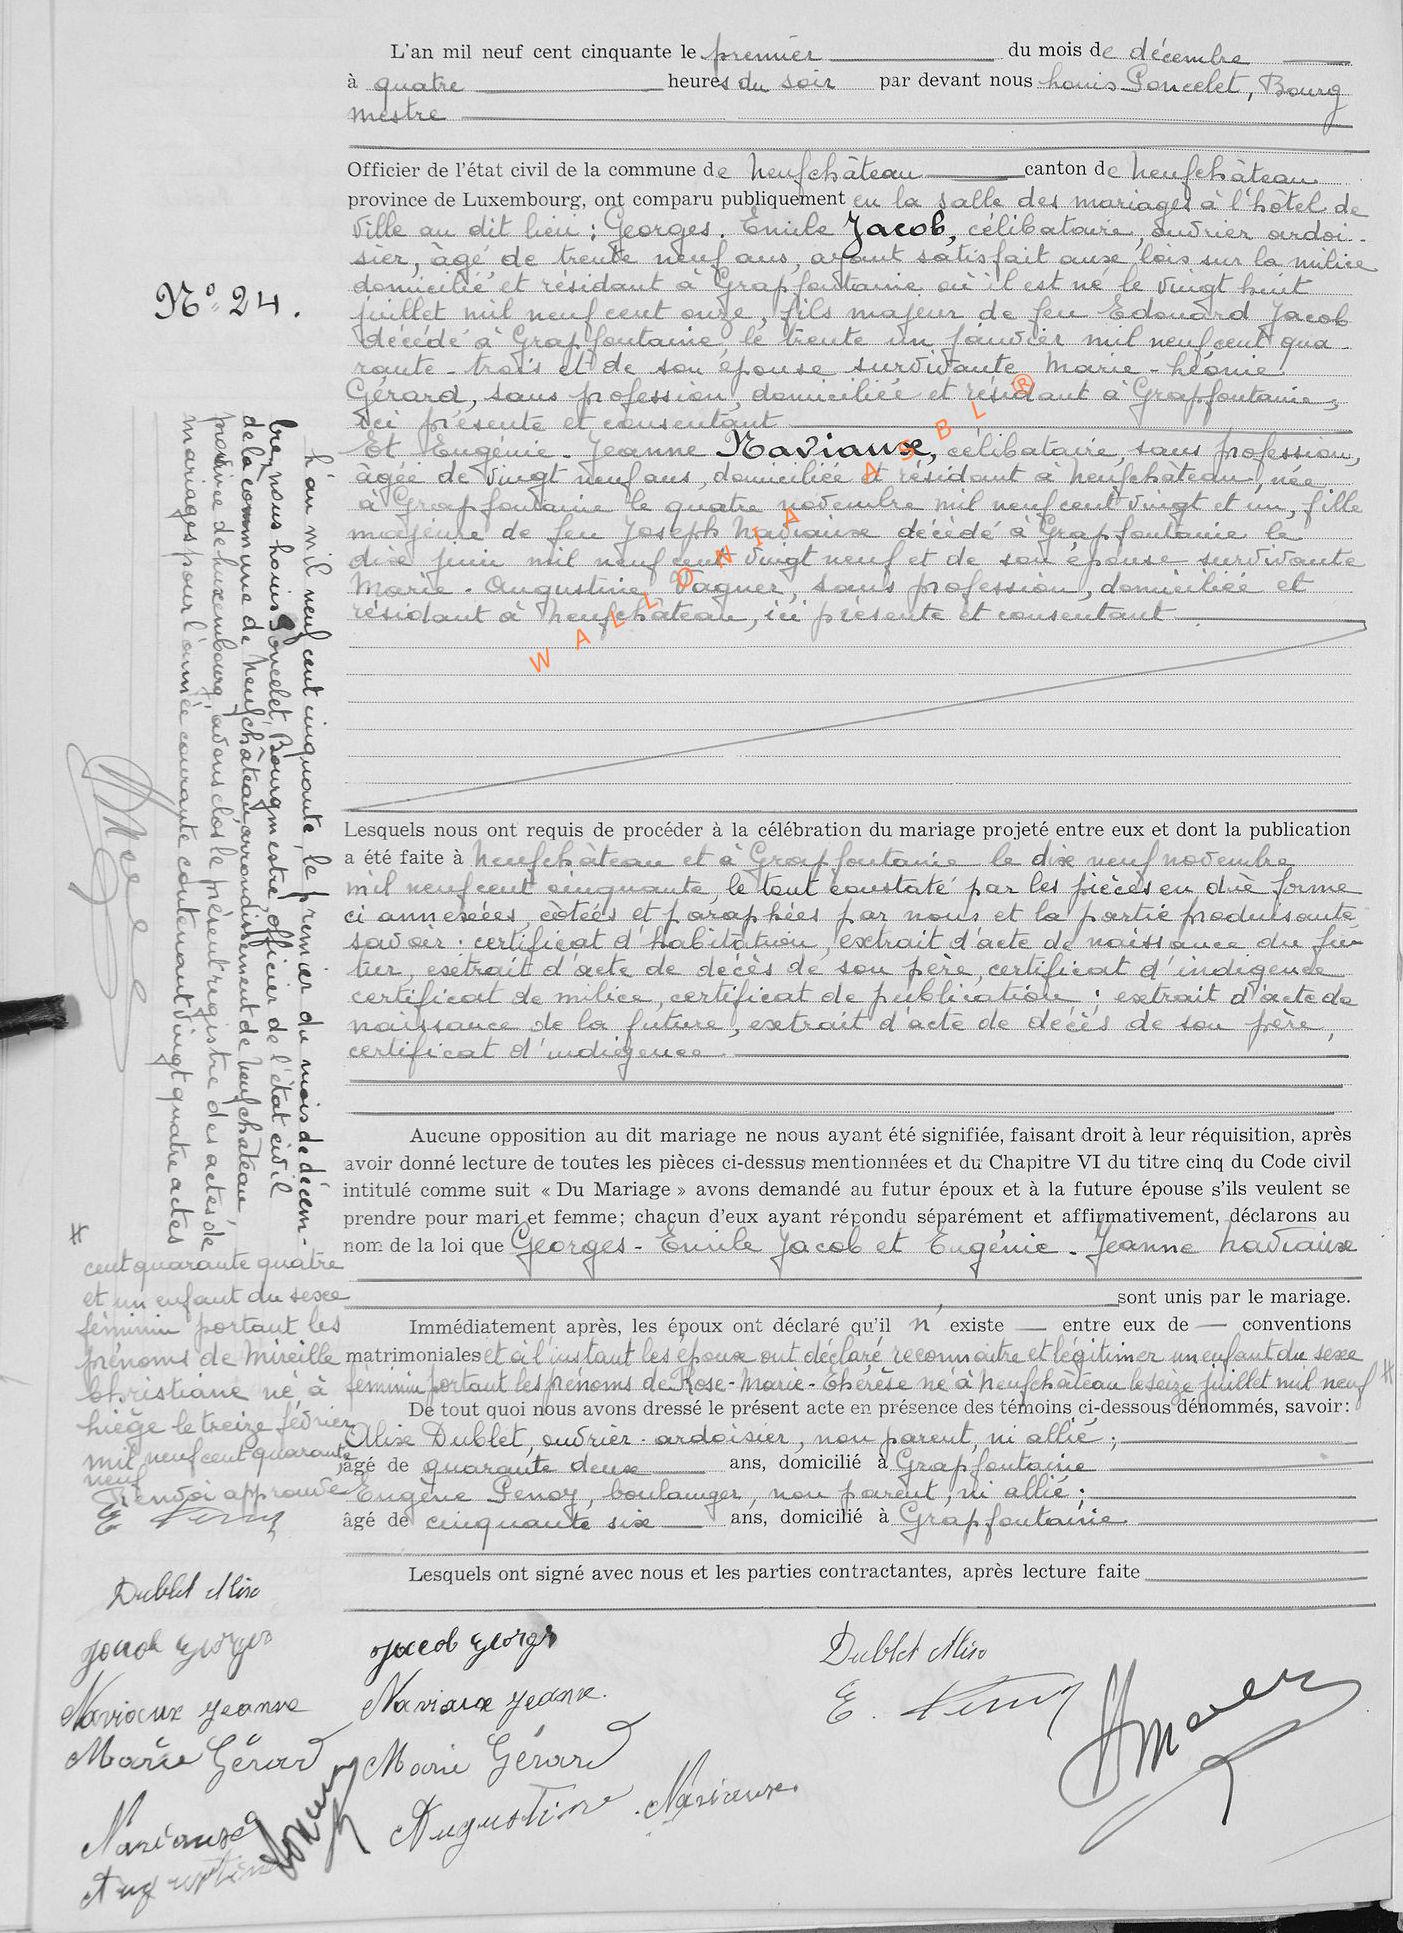 L'an mil neuf cent cinquante le premier du mois de décembre
à quatre heures du soir par devant nous Louis Poncelet, Bourg
mestre
Officier de l'état civil de la commune de Neufchâteau canton de Neufchâteau
province de Luxembourg, ont comparu publiquement en la salle des mariages à l'hôtel de
ville au dit lieu : Georges. Emile Jacob, célibataire, ouvrier ardoi-
sier, âgé de trente neuf ans, ayant satisfait aux lois sur la milice
domicilié et résidant à Grapfontaine où il est né le vingt huit
juillet mil neuf cent onze, fils majeur de feu Edouard Jacob
décédé à Grapfontaine le trente un janvier mil neuf cent qua-
rante-trois et de son épouse survivante Marie-Léonie
Gérard, sans profession, domiciliée et résidant à Grapfontaine,
ici présente et consentant
Et Eugénie-Jeanne Naviaux, célibataire, sans profession,
âgée de vingt neuf ans, domiciliée et résidant à Neufchâteau, née
à Grapfontaine le quatre novembre mil neuf cent vingt et un, fille
majeure de feu Joseph Naviaux décédé à Grapfontaine le
dix juin mil neuf cent vingt neuf et de son épouse survivante
Marie-Augustine Vagner, sans profession, domiciliée et
résidant à Neufchâteau, ici présente et consentant
WALLONIA ASBL ®
N° 24.
L'an mil neuf cent cinquante, le premier du mois de décem-
bre, nous Louis Poncelet, Bourgmestre, officier de l'état civil
de la commune de Neufchâteau, arrondissement de Neufchâteau,
province de Luxembourg, avons clos le présent registre des actes de
mariages pour l'année courante contenant vingt quatre actes
Lesquels nous ont requis de procéder à la célébration du mariage projeté entre eux et dont la publication
a été faite à Neufchâteau et à Grapfontaine le dix neuf novembre
mil neuf cent cinquante, le tout constaté par les pièces en due forme
ci annexées, côtées et paraphées par nous et la partie produisante
savoir : certificat d'habitation, extrait d'acte de naissance du fu-
tur, extrait d'acte de décès de son père, certificat d'indigence
certificat de milice, certificat de publication ; extrait d'acte de
naissance de la future, extrait d'acte de décès de son père,
certificat d'indigence.
Aucune opposition au dit mariage ne nous ayant été signifiée, faisant droit à leur réquisition, après
avoir donné lecture de toutes les pièces ci-dessus mentionnées et du Chapitre VI du titre cinq du Code civil
intitulé comme suit « Du Mariage » avons demandé au futur époux et à la future épouse s'ils veulent se
prendre pour mari et femme; chacun d'eux ayant répondu séparément et affirmativement, déclarons au
nom de la loi que Georges-Emile Jacob et Eugénie-Jeanne Naviaux
sont unis par le mariage.
Immédiatement après, les époux ont déclaré qu'il n'existe entre eux de conventions
matrimoniales et à l'instant les époux ont déclaré reconnaître et légitimer un enfant du sexe
féminin portant les prénoms de Rose-Marie-Thérèse né à Neufchâteau le seize juillet mil neuf #
# cent quarante quatre
et un enfant du sexe
féminin portant les
prénoms de Mireille
Christiane né à
Liège le treize février
mil neuf cent quarante
neuf
Renvoi approuvé
De tout quoi nous avons dressé le présent acte en présence des témoins ci-dessous dénommés, savoir:
Alix Dublet, ouvrier-ardoisier, non parent, ni allié;
âgé de quarante deux ans, domicilié à Grapfontaine
Eugène Penoy, boulanger, non parent, ni allié;
âgé de cinquante six ans, domicilié à Grapfontaine
Lesquels ont signé avec nous et les parties contractantes, après lecture faite
Dublet Alix
Jacob Georges
Naviaux Jeanne
Marie Gérard
Naviaux
Augustine
Jacob Georges
Naviaux Jeanne.
Marie Gérard
Augustine Naviaux.
Dublet Alix